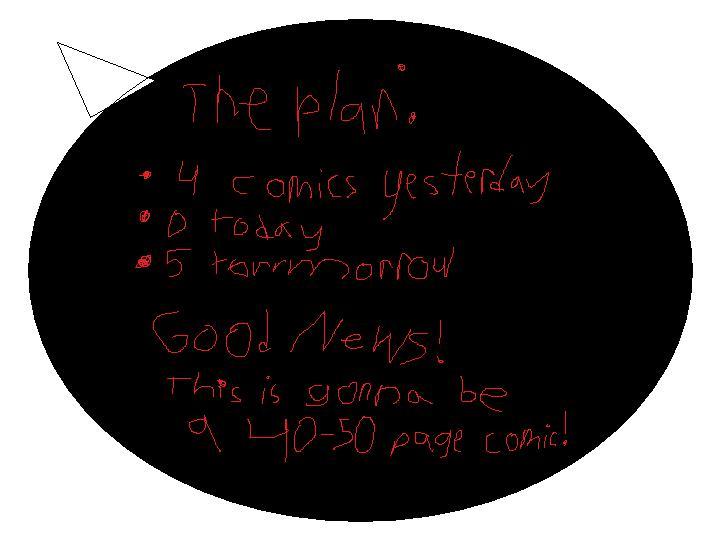 The plan:
• 4 comics yesterday
• 0 today
• 5 torrrmorrow
Good News!
This is gonna be
a 40-50 page comic!